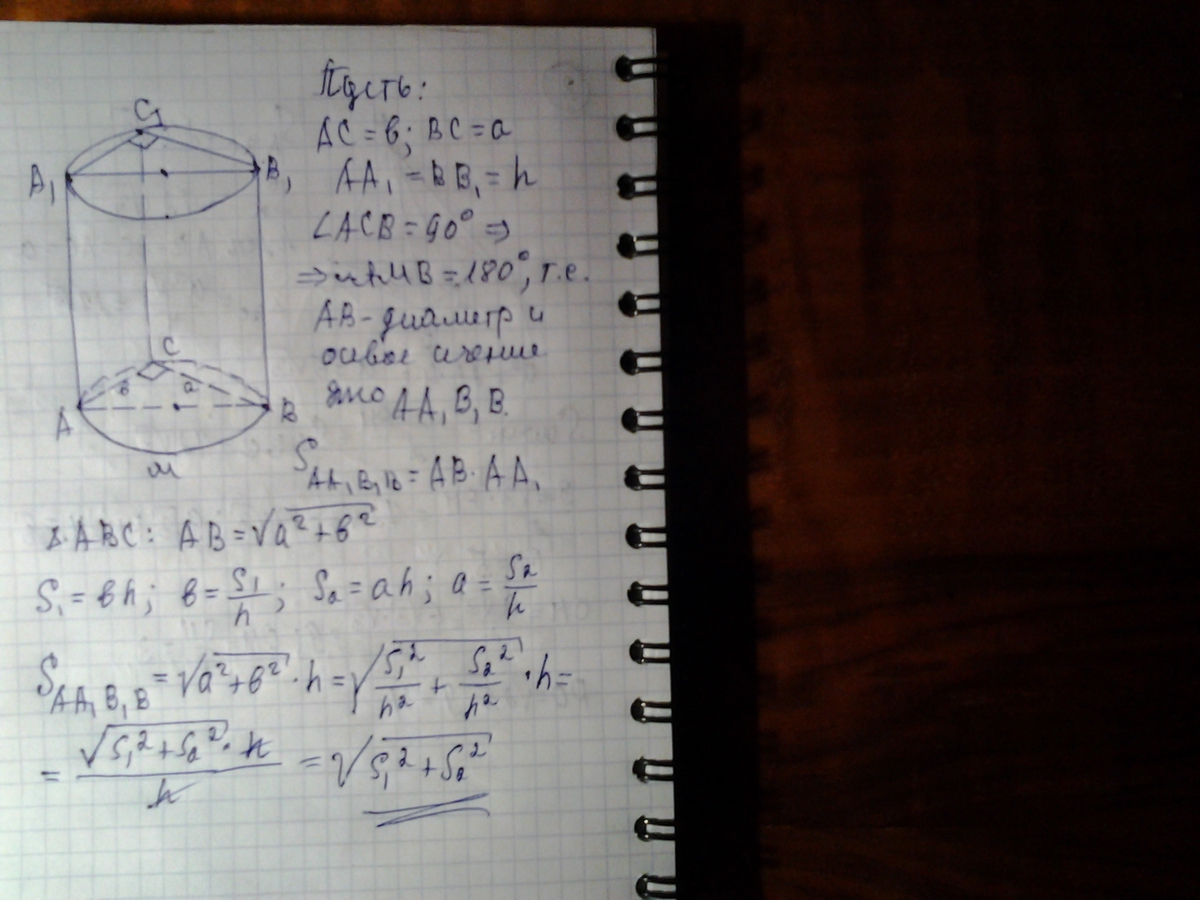 Пусть:
AC = в; BC = a
AA₁ = BB₁ = h
∠ACB = 90° ⇒
⇒ ◡AMB = 180°, т.е.
AB - диаметр и
осевое сечение
это AA₁B₁B.
S_{AA₁B₁B} = AB · AA₁
C₁
A₁
B₁
C
в
a
A
B
м
△ABC: AB = √(a² + в²)
S₁ = вh; в = S₁/h; S₂ = ah; a = S₂/h
S_{AA₁B₁B} = √(a² + в²) · h = √(S₁²/h² + S₂²/h²) · h =
= (√(S₁² + S₂²) · h)/h = √(S₁² + S₂²)